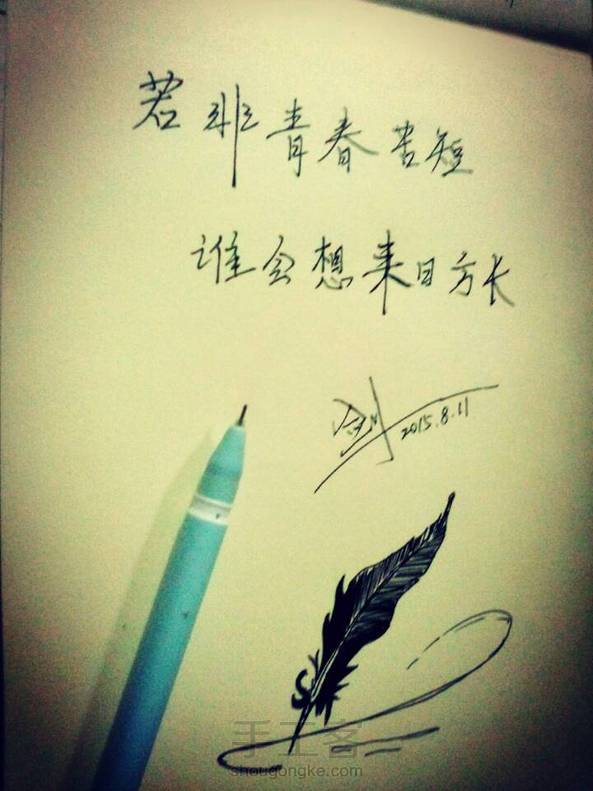 若非青春苦短
谁会想来日方长
剑
2015.8.11
手工客
shougongke.com